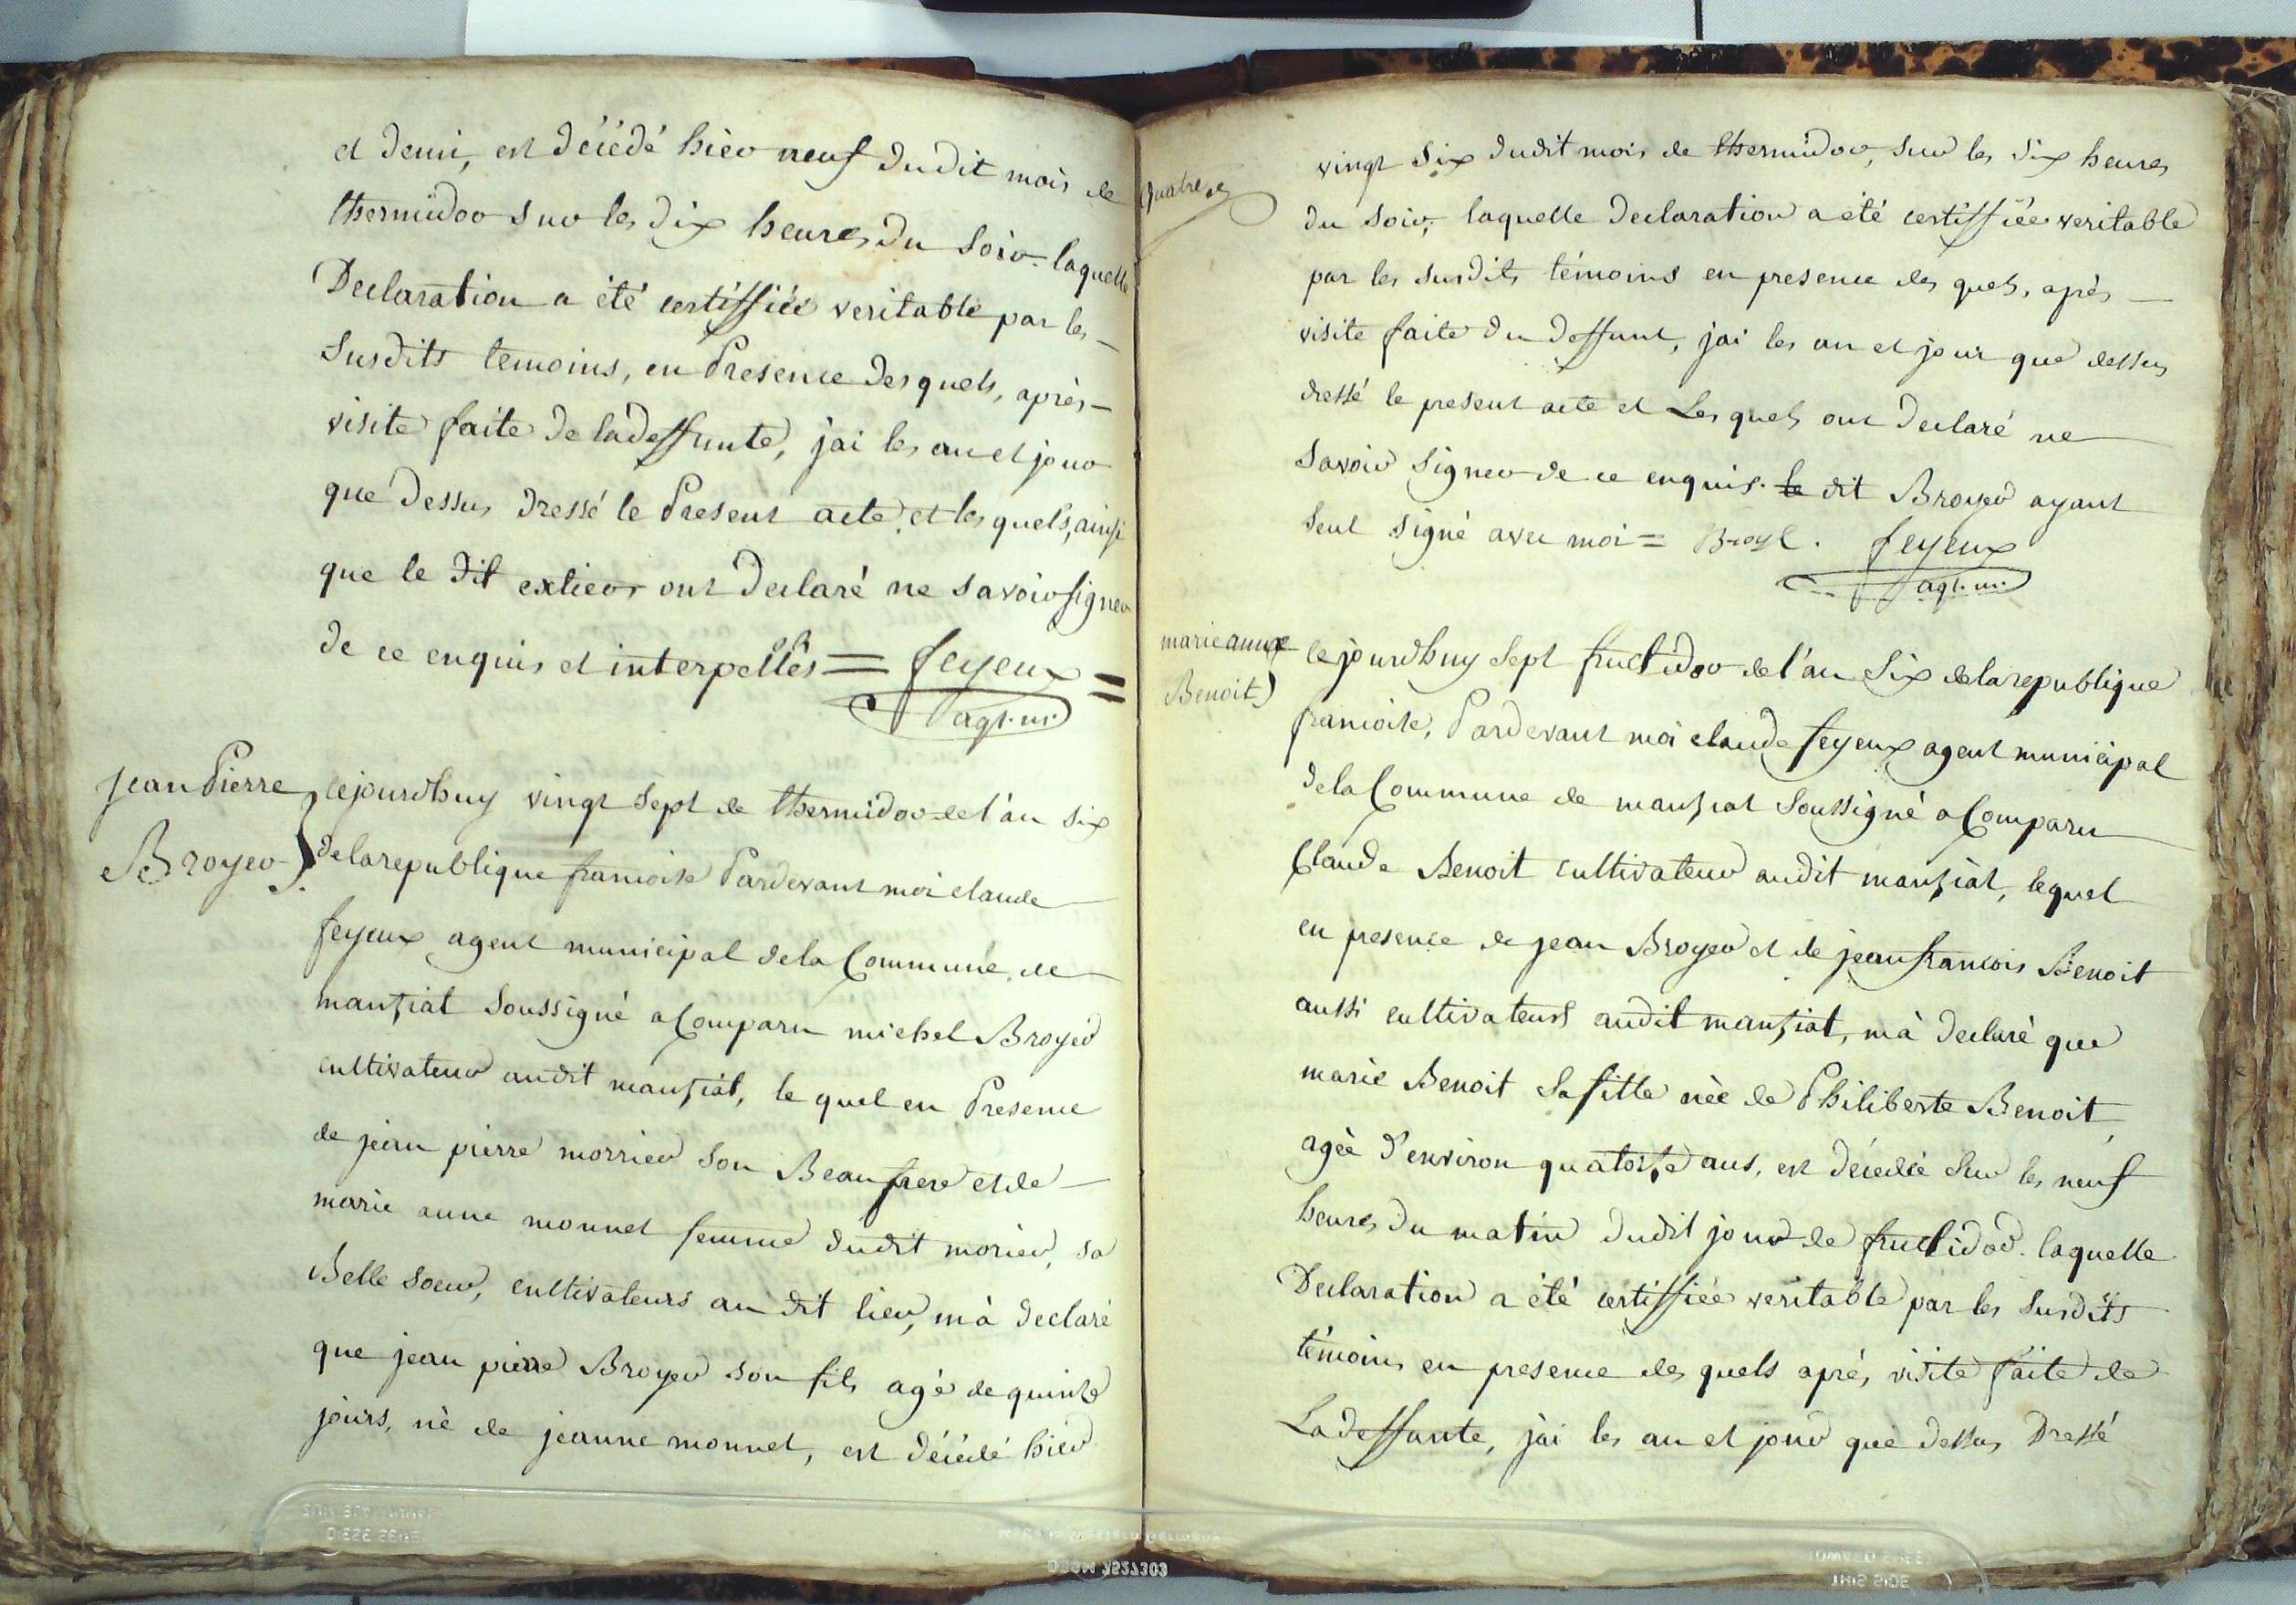 et demi, est décédé hier neuf dudit mois de
thermidor sur les dix heures du soir. laquelle
Declaration a été certiffiée veritable par les
susdits temoins, en Presence desquels, après
visite faite de la deffunte, j'ai les an et jour
que dessus dressé le Present acte et les quels, ainsi
que le dit extier ont declaré ne savoir signer
de ce enquis et interpellés = feyeux =
agt. m.
Jean Pierre
Broyer
cejourdhuy vingt sept de thermidor de l'an six
de la republique francoise Pardevant moi claude
feyeux agent municipal de la Commune de
manziat soussigné a Comparu michel Broyer
cultivateur audit manziat, le quel en Presence
de jean pierre morrier son Beau frere et de
marie anne monnet femme dudit morier, sa
Belle soeur, cultivateurs au dit lieu, m'à declaré
que jean pierre Broyer son fils agé de quinze
jours, né de jeanne monnet, est décédé hier
quatre
vingt six dudit mois de thermidor, sur les six heures
du soir, laquelle declaration a été certiffiée veritable
par les susdits témoins en presence des quels, après
visite faite du deffunt, j'ai les an et jour que dessus
dressé le present acte et Les quels ont declaré ne
savoir signer de ce enquis. le dit Broyer ayant
seul signé avec moi = Broye . feyeux
agt. m.
marie anne
Benoit
cejourdhuy sept fructidor de l'an six de la republique
francoise, Pardevant moi claude feyeux agent municipal
de la Commune de manziat soussigné a Comparu
Claude Benoit cultivateur audit manziat, lequel
en presence de jean Broyer et de jean francois Benoit
aussi cultivateurs audit manziat, m'à declaré que
marie Benoit sa fille née de Philiberte Benoit
agée d'environ quatorze ans, est décédée sur les neuf
heures du matin dudit jour de fructidor. laquelle
Declaration a été certiffiée veritable par les susdits
témoins en presence des quels après visite faite de
La deffunte, j'ai les an et jour que dessus Dressé